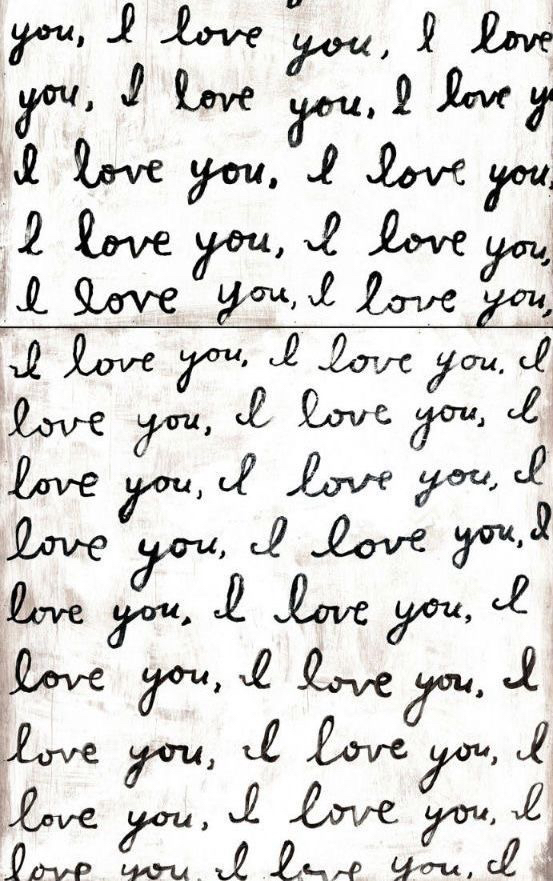 you, I love you, I love
you, I love you, I love y
I love you, I love you,
I love you, I love you,
I love you, I love you,
I love you, I love you, I
love you, I love you, I
love you, I love you, I
love you, I love you, I
love you, I love you, I
love you, I love you, I
love you, I love you, I
love you, I love you, I
love you, I love you, I